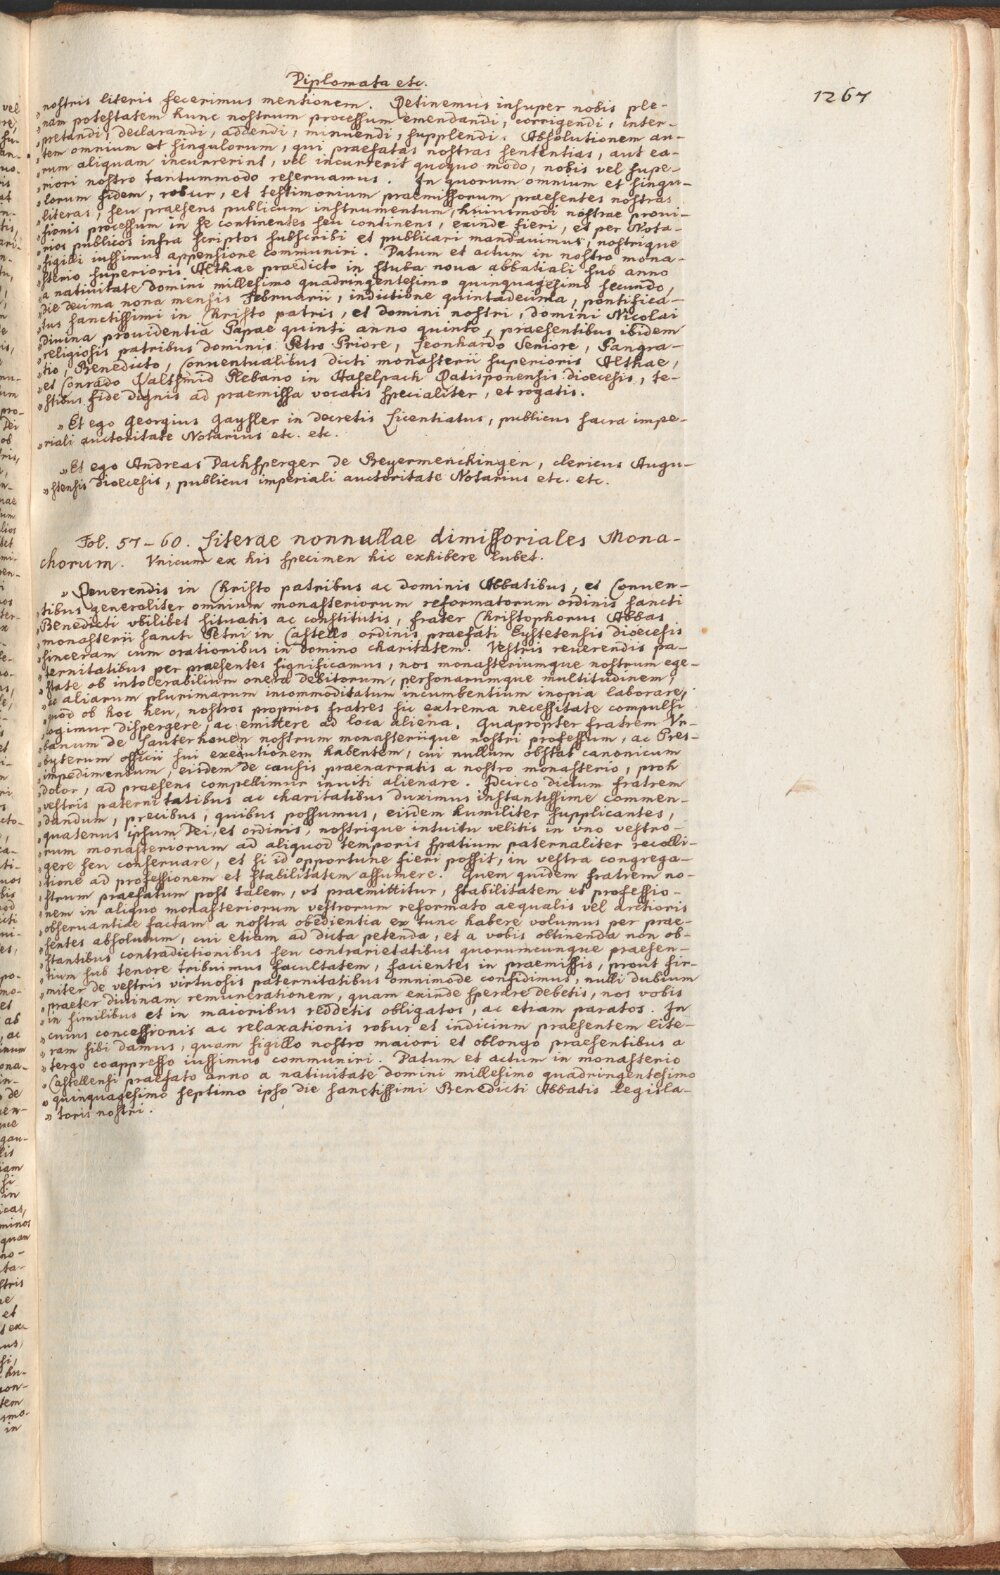 Diplomata etc.
1267
„nostris literis fecerimus mentionem. Retinemus insuper nobis ple-
„nam potestatem hunc nostrum processum emendandi, corrigendi, inter-
„pretandi, declarandi, addendi, minuendi, supplendi. Absolutionem au-
„tem omnium et singulorum, qui praefatas nostras sententias, aut ea-
„rum aliquam incurrerint, vel incurrerit quoquo modo, nobis vel supe-
„riori nostro tantummodo reservamus. In quorum omnium et singu-
„lorum fidem, robur, et testimonium praemissorum praesentes nostras
„literas, seu praesens publicum instrumentum, huiusmodi nostrae provi-
„sionis processum in se continentes seu continens, exinde fieri, et per Nota-
„rios publicos infra scriptos subscribi et publicari mandauimus, nostrique
„sigilli iussimus appensione communiri. Datum et actum in nostro mona-
„sterio superioris Althae praedicto in stuba noua abbatiali sub anno
„a natiuitate Domini millesimo quadringentesimo quinquagesimo secundo,
„die decima nona mensis Februarii, indictione quintadecima, pontifica-
„tus sanctissimi in Christo patris, et domini nostri, domini Nicolai
„diuina prouidentia Papae quinti anno quinto, praesentibus ibidem
„religiosis patribus dominis Petro Priore, Leonhardo Seniore, Pangra-
„tio, Benedicto, Conuentualibus dicti monasterii superioris Althae,
„et Conrado Waltsmid Plebano in Haselpach Ratisponensis dioecesis, te-
„stibus fide dignis ad praemissa vocatis specialiter, et rogatis.
„Et ego Georgius Gaysler in decretis Licentiatus, publicus sacra impe-
„riali auctoritate Notarius etc. etc.
„Et ego Andreas Dachsperger de Beyermenchingen, clericus Augu-
„stensis Dioecesis, publicus imperiali auctoritate Notarius etc. etc.
Fol. 57-60. Literae nonnullae dimissoriales Mona-
chorum. Vnicum ex his specimen hic exhibere lubet.
„Reuerendis in Christo patribus ac dominis Abbatibus, et Conuen-
„tibus generaliter omnium monasteriorum reformatorum ordinis sancti
„Benedicti vbilibet situatis ac constitutis, frater Christophorus Abbas
„monasterii sancti Petri in Castello ordinis praefati Eystetensis Dioecesis
„sinceram cum orationibus in domino charitatem. Vestris reuerendis pa-
„ternitatibus per praesentes significamus, nos monasteriumque nostrum ege-
„state ob intolerabilium onera debitorum, personarumque multitudinem,
„ac aliarum plurimarum incommoditatum incumbentium inopia laborare,
„quod ob hoc heu, nostros proprios fratres hic extrema necessitate compulsi
„cogimur dispergere, ac emittere ad loca aliena. Quapropter fratrem Vr-
„banum de Lauterhouen nostrum monasteriique nostri professum, ac Pres-
„byterum officii sui executionem habentem, cui nullum obstat canonicum
„impedimentum, eisdem de causis praenarratis a nostro monasterio, proh
„dolor, ad praesens compellimur inuiti alienare. Idcirco dictum fratrem
„vestris paternitatibus ac charitatibus duximus instantissime commen-
„dandum, precibus, quibus possumus, eisdem humiliter supplicantes,
„quatenus ipsum Dei, et ordinis, nostrique intuitu velitis in vno vestro-
„rum monasteriorum ad aliquod temporis spatium paternaliter recolli-
„gere seu conseruare, et si id opportune fieri possit, in vestra congrega-
„tione ad professionem et stabilitatem assumere. Quem quidem fratrem no-
„strum praefatum post talem, vt praemittitur, stabilitatem et professio-
„nem in aliquo monasteriorum vestrorum reformato aequalis vel arctioris
„obseruantiae factam a nostra obedientia ex tunc habere volumus per prae-
„sentes absolutum, cui etiam ad dicta petenda, et a vobis obtinenda non ob-
„stantibus contradictionibus seu contrarietatibus quorumcunque praesen-
„tium sub tenore tribuimus facultatem, facientes in praemissis, prout fir-
„miter de vestris virtuosis paternitatibus omnimode confidimus, nulli dubium
„praeter diuinam remunerationem, quam exinde sperare debetis, nos vobis
„in similibus et in maioribus reddetis obligatos, ac etiam paratos. In
„cuius concessionis ac relaxationis robur et indicium praesentem lite-
„ram sibi damus, quam sigillo nostro maiori et oblongo praesentibus a
„tergo coappresso iussimus communiri. Datum et actum in monasterio
„Castellensi praefato anno a natiuitate domini millesimo quadringentesimo
„quinquagesimo septimo ipso die sanctissimi Benedicti Abbatis legisla-
„toris nostri.